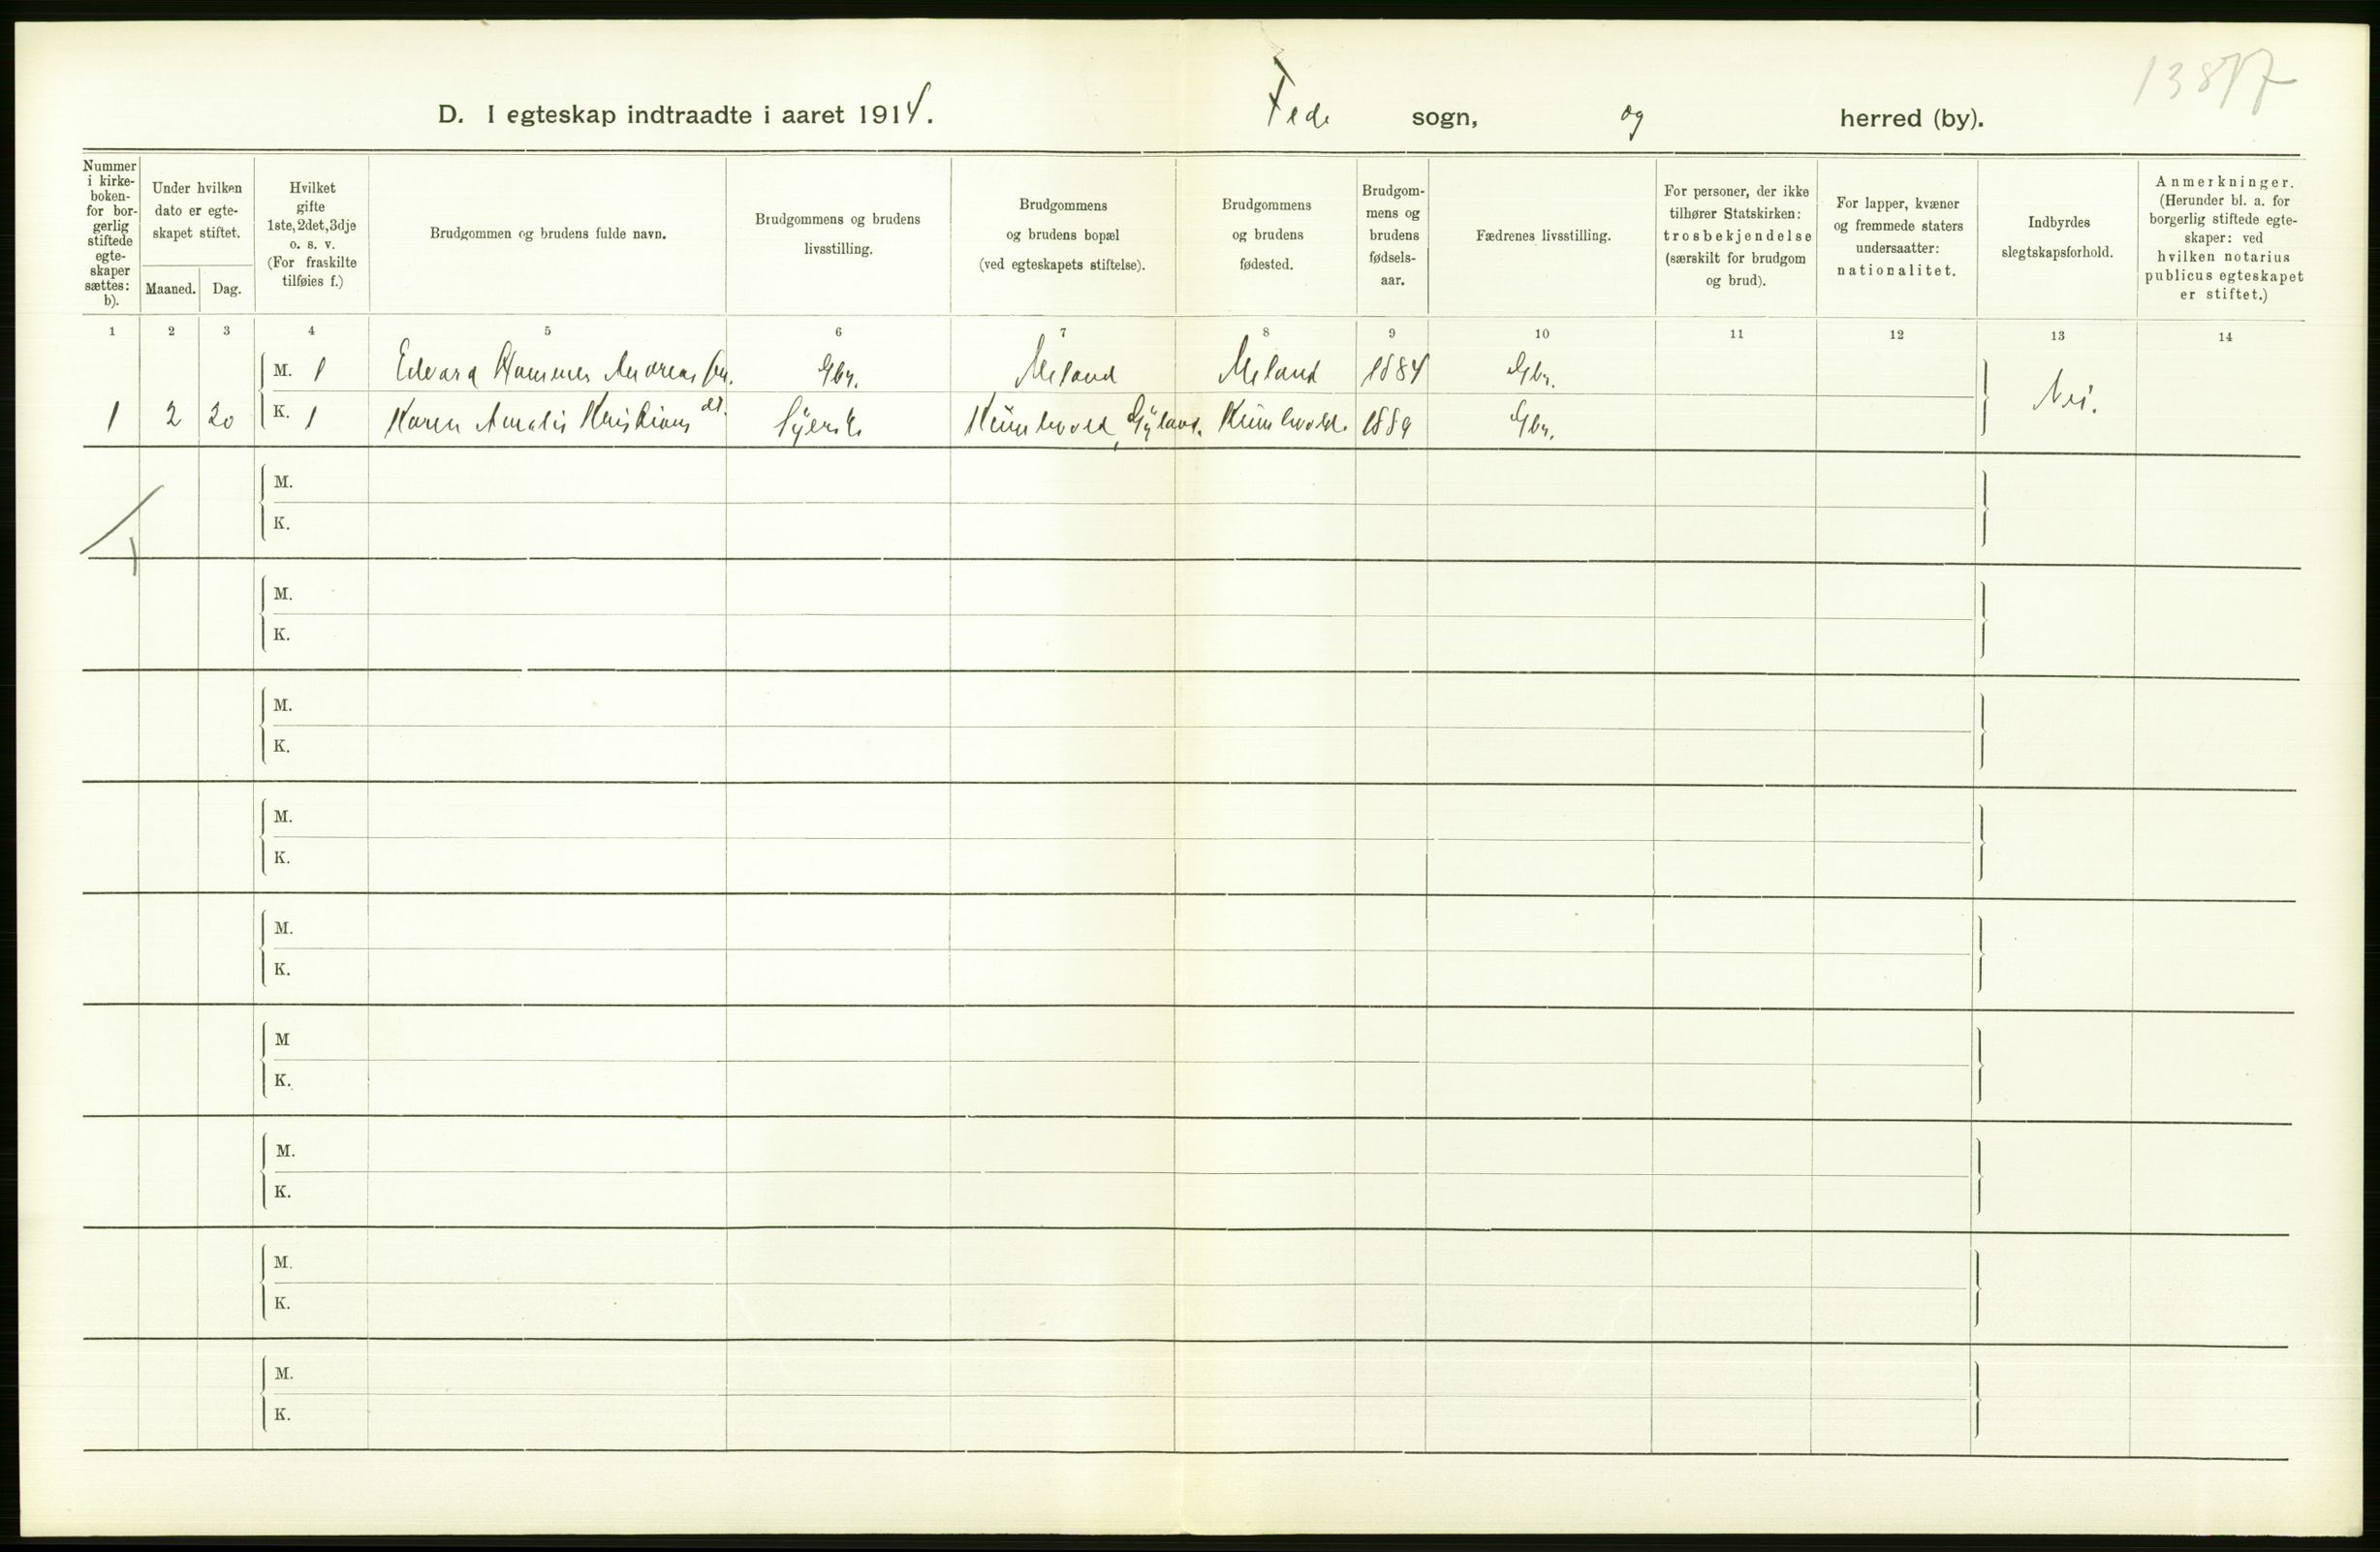 1387
D. I egteskap indtraadte i aaret 1914.
Fede sogn, og herred (by).
Nummer i kirke-boken- for bor-gerlig stiftede egte-skaper sættes: b).
Under hvilken dato er egte-skapet stiftet.
Maaned. Dag.
Hvilket gifte 1ste, 2det, 3dje o. s. v. (For fraskilte tilføies f.)
Brudgommen og brudens fulde navn.
Brudgommens og brudens livsstilling.
Brudgommens og brudens bopæl (ved egteskapets stiftelse).
Brudgommens og brudens fødested.
Brudgom-mens og brudens fødsels-aar.
Fædrenes livsstilling.
For personer, der ikke tilhører Statskirken: trosbekjendelse (særskilt for brudgom og brud).
For lapper, kvæner og fremmede staters undersaatter: nationalitet.
Indbyrdes slegtskapsforhold.
Anmerkninger. (Herunder bl. a. for borgerlig stiftede egte-skaper: ved hvilken notarius publicus egteskapet er stiftet.)
1 2 3 4 5 6 7 8 9 10 11 12 13 14
M. 1 Edvard Hammer Andreas Gbr. Meland Meland 1884 Gbr. Nei.
1 2 20 K. 1 Karen Amalie Kristians dt. Syersk Gyland. 1889 Gbr.
M.
K.
M.
K.
M.
K.
M.
K.
M.
K.
M
K.
M.
K.
M.
K.
M.
K.